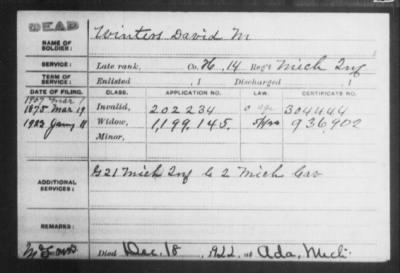 DEAD
NAME OF SOLDIER: Winters David M
SERVICE: Late rank, Co. 14 Reg't Mich Inf
TERM OF SERVICE: Enlisted , 1 Discharged , 1
DATE OF FILING. CLASS. APPLICATION NO. LAW. CERTIFICATE NO.
1907 Mar 1
1875 Mar 19 Invalid, 202234 304444
1923 11 Widow, 1,199,145. 936,902
Minor,
ADDITIONAL SERVICES: G 21 Mich Inf C 2 Mich Cav
REMARKS:
Died Dec. 18, 1922, at Ada, Mich.